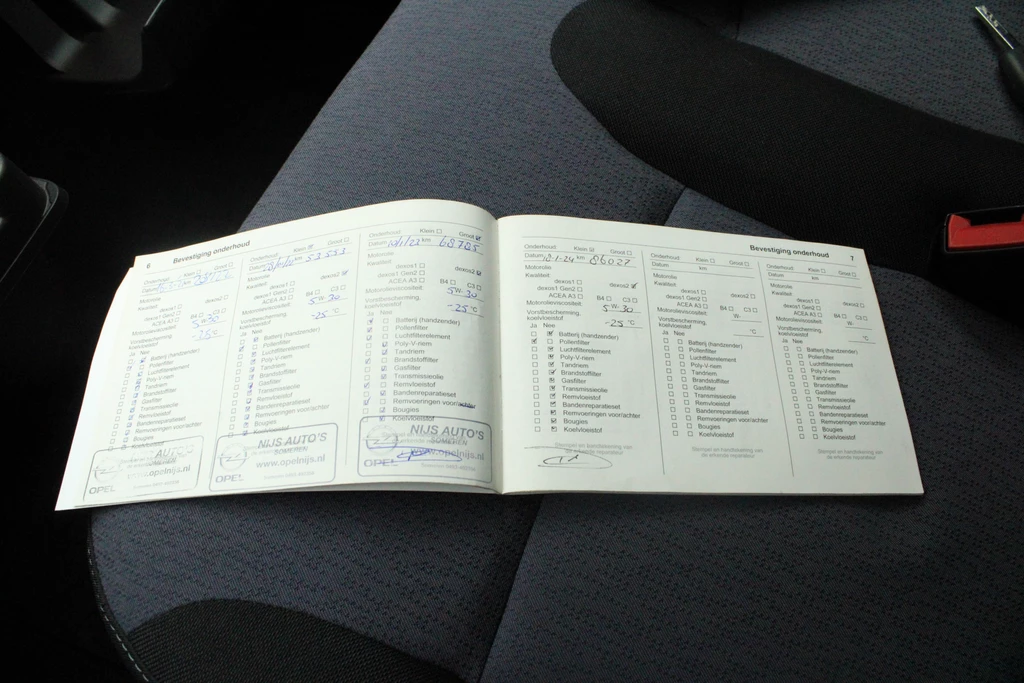 6 Bevestiging onderhoud
Onderhoud: Klein Groot
Datum km
Motorolie
Kwaliteit: dexos2
dexos1
dexos1 Gen2
ACEA A3 B4 C3
Motorolieviscositeit: 5 W-30
Vorstbescherming, koelvloeistof -25 °C
Ja Nee
Batterij (handzender)
Pollenfilter
Luchtfilterelement
Poly-V-riem
Tandriem
Brandstoffilter
Gasfilter
Transmissieolie
Remvloeistof
Bandenreparatieset
Remvoeringen voor/achter
Bougies
Koelvloeistof
AUTO'S
www.opelnijs.nl
OPEL
Onderhoud: Klein Groot
Datum km 53553
Motorolie
Kwaliteit: dexos2
dexos1
dexos1 Gen2
ACEA A3 B4 C3
Motorolieviscositeit: 5 W-30
Vorstbescherming, koelvloeistof -25 °C
Ja Nee
Batterij (handzender)
Pollenfilter
Luchtfilterelement
Poly-V-riem
Tandriem
Brandstoffilter
Gasfilter
Transmissieolie
Remvloeistof
Bandenreparatieset
Remvoeringen voor/achter
Bougies
Koelvloeistof
NIJS AUTO'S
SOMEREN
www.opelnijs.nl
OPEL
Onderhoud: Klein Groot
Datum 10/1/22 km 68785
Motorolie
Kwaliteit: dexos2
dexos1
dexos1 Gen2
ACEA A3 B4 C3
Motorolieviscositeit: 5 W-30
Vorstbescherming, koelvloeistof -25 °C
Ja Nee
Batterij (handzender)
Pollenfilter
Luchtfilterelement
Poly-V-riem
Tandriem
Brandstoffilter
Gasfilter
Transmissieolie
Remvloeistof
Bandenreparatieset
Remvoeringen voor/achter
Bougies
Koelvloeistof
NIJS AUTO'S
SOMEREN
www.opelnijs.nl
OPEL
Bevestiging onderhoud 7
Onderhoud: Klein Groot
Datum 10-1-24 km 86027
Motorolie
Kwaliteit: dexos2
dexos1
dexos1 Gen2
ACEA A3 B4 C3
Motorolieviscositeit: 5 W-30
Vorstbescherming, koelvloeistof -25 °C
Ja Nee
Batterij (handzender)
Pollenfilter
Luchtfilterelement
Poly-V-riem
Tandriem
Brandstoffilter
Gasfilter
Transmissieolie
Remvloeistof
Bandenreparatieset
Remvoeringen voor/achter
Bougies
Koelvloeistof
Stempel en handtekening van
de erkende reparateur
Onderhoud: Klein Groot
Datum km
Motorolie
Kwaliteit: dexos2
dexos1
dexos1 Gen2
ACEA A3 B4 C3
Motorolieviscositeit: W-
Vorstbescherming, koelvloeistof °C
Ja Nee
Batterij (handzender)
Pollenfilter
Luchtfilterelement
Poly-V-riem
Tandriem
Brandstoffilter
Gasfilter
Transmissieolie
Remvloeistof
Bandenreparatieset
Remvoeringen voor/achter
Bougies
Koelvloeistof
Stempel en handtekening van
de erkende reparateur
Onderhoud: Klein Groot
Datum km
Motorolie
Kwaliteit: dexos2
dexos1
dexos1 Gen2
ACEA A3 B4 C3
Motorolieviscositeit: W-
Vorstbescherming, koelvloeistof °C
Ja Nee
Batterij (handzender)
Pollenfilter
Luchtfilterelement
Poly-V-riem
Tandriem
Brandstoffilter
Gasfilter
Transmissieolie
Remvloeistof
Bandenreparatieset
Remvoeringen voor/achter
Bougies
Koelvloeistof
Stempel en handtekening van
de erkende reparateur